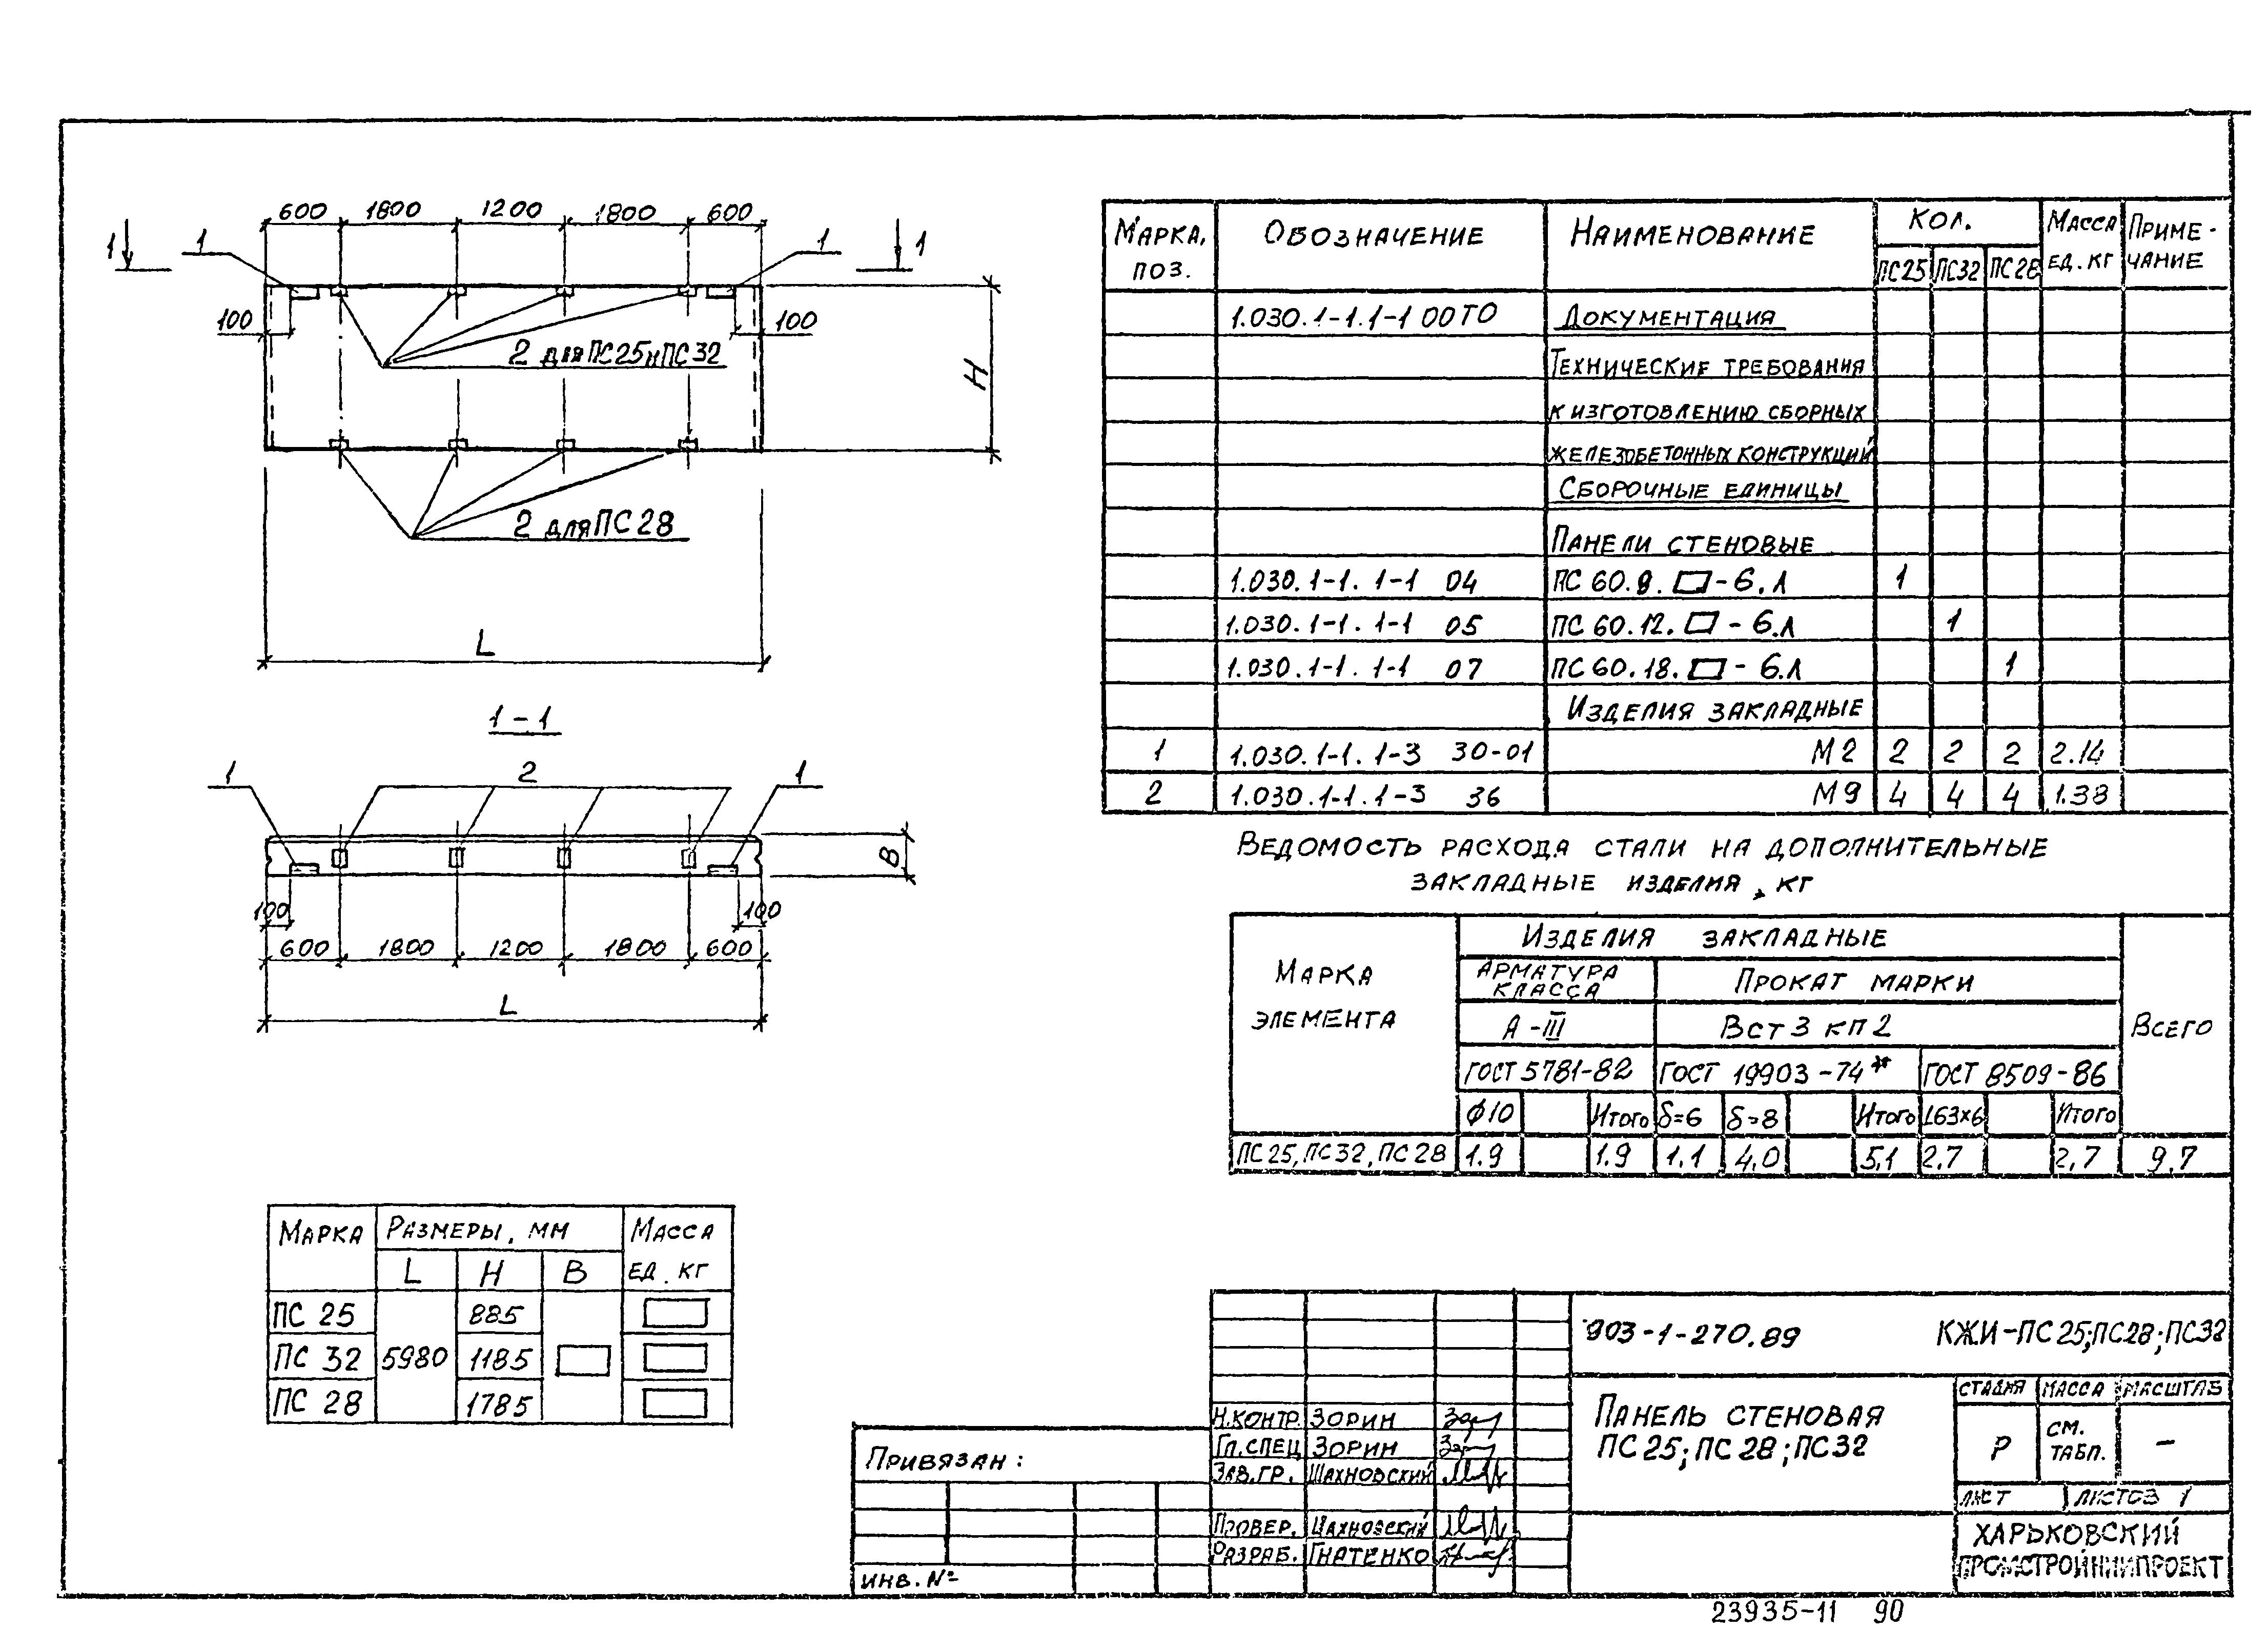 600 1800 1200 1800 600
1 1 1 1
100 100
2 для ПС25 и ПС32
H
2 для ПС28
L
1-1
1 2 1
В
100 100
600 1800 1200 1800 600
L
Марка, поз. Обозначение Наименование Кол. Масса ед. кг Приме-чание
ПС25 ПС32 ПС28
1.030.1-1.1-1 00ТО Документация
Технические требования
к изготовлению сборных
железобетонных конструкций
Сборочные единицы
Панели стеновые
1.030.1-1.1-1 04 ПС 60.9.▭-6.Л 1
1.030.1-1.1-1 05 ПС 60.12.▭-6.Л 1
1.030.1-1.1-1 07 ПС 60.18.▭-6.Л 1
Изделия закладные
1 1.030.1-1.1-3 30-01 М2 2 2 2 2.14
2 1.030.1-1.1-3 36 М9 4 4 4 1.38
Ведомость расхода стали на дополнительные
закладные изделия, кг
Марка элемента Изделия закладные Всего
Арматура класса Прокат марки
А-III Вст3 кп2
ГОСТ 5781-82 ГОСТ 19903-74* ГОСТ 8509-86
ϕ10 Итого δ=6 δ=8 Итого L63х6 Итого
ПС25, ПС32, ПС28 1.9 1.9 1.1 4.0 5,1 2,7 2,7 9,7
Марка Размеры, мм Масса
L H В ед. кг
ПС 25 885
ПС 32 5980 1185
ПС 28 1785
903-1-270.89 КЖИ-ПС25;ПС28;ПС32
Панель стеновая
ПС25; ПС28; ПС32
Стадия Масса Масштаб
Р см. табл. -
Лист Листов 1
Харьковский
Промстройниипроект
Н.контр. Зорин
Гл.спец Зорин
Зав.гр. Шахновский
Провер. Шахновский
Разраб. Гнатенко
Привязан:
инв. №
23935-11 90